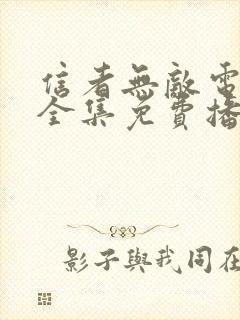 信者無敵電
全集免費播
影子與我同在